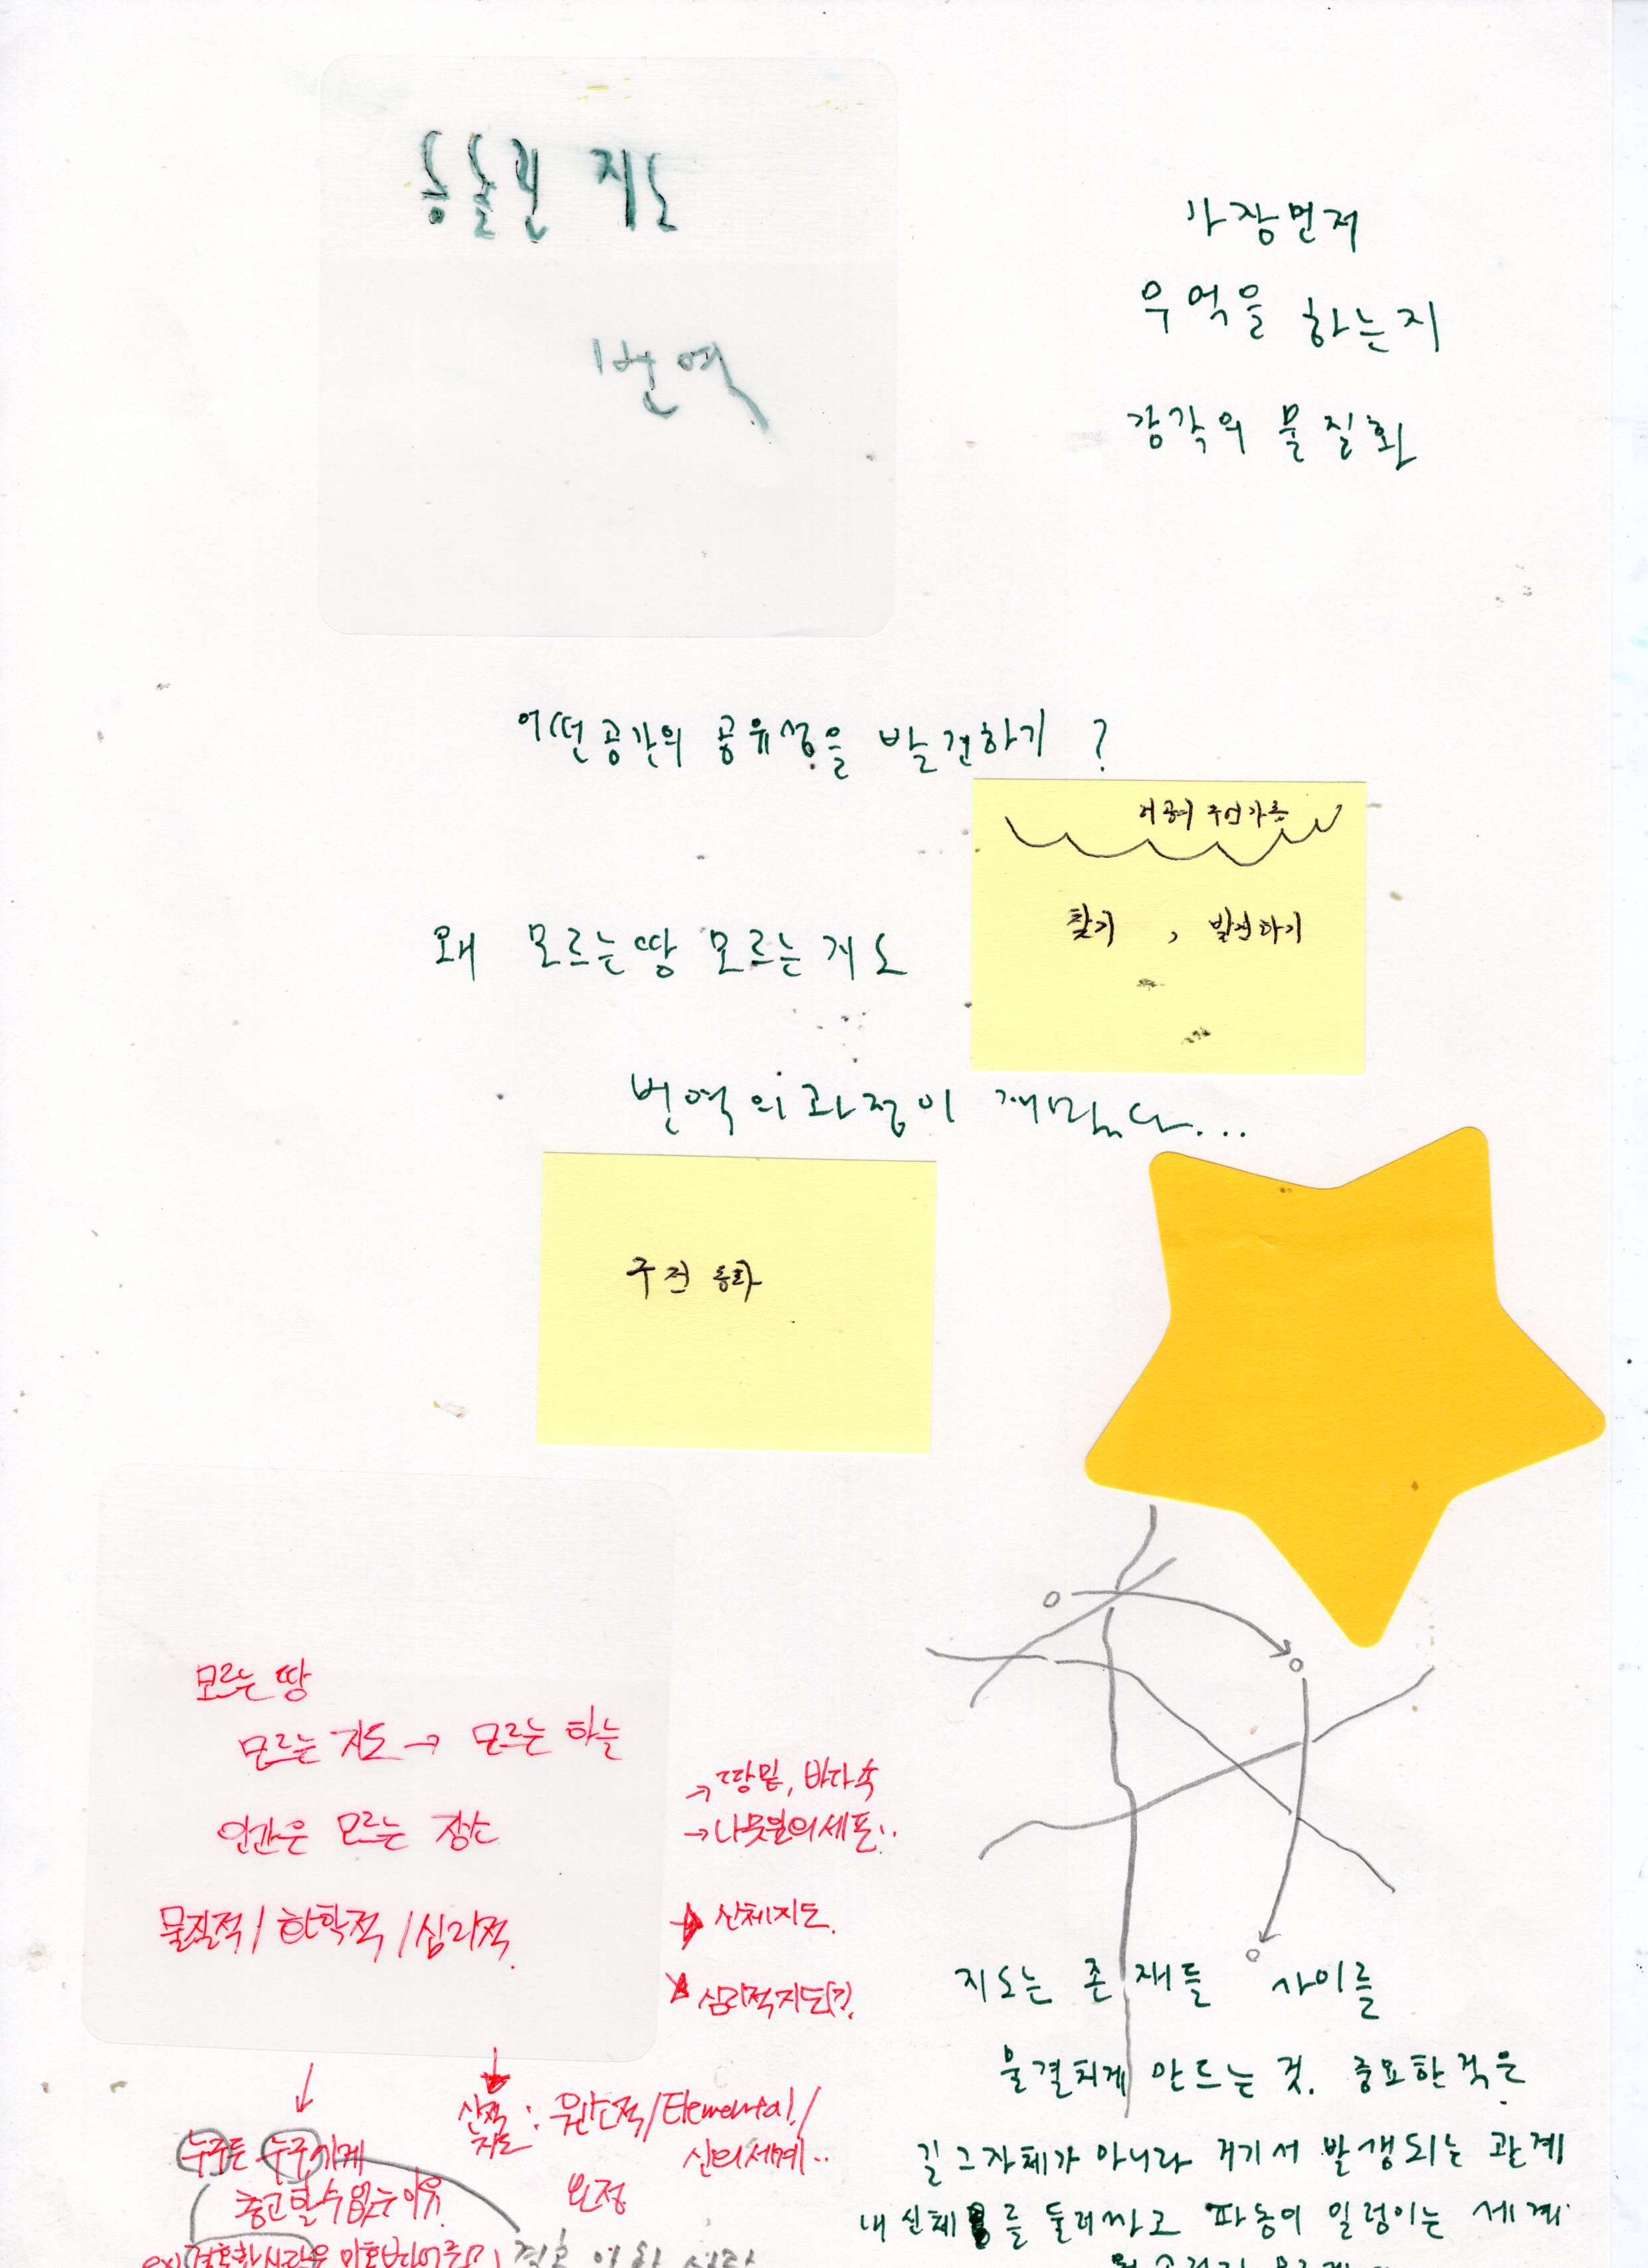 지도
번역
가장먼저
무엇을 하는지
감각의 물질화
어떤공간의 공유성을 발견하기 ?
찾기 , 발견하기
왜 모르는땅 모르는지도
번역의과정이 재밌다...
구전 동화
모르는 땅
모르는 지도 → 모르는 하늘
인간은 모르는 장소
물질적 / 화학적 / 심리적.
→ 땅밑, 바다속
→ 나뭇잎의세포..
신체지도.
심리적지도(?).
지도는 존재들 사이를
물결치게 만드는 것. 중요한것은
길 그자체가 아니라 거기서 발생되는 관계
내 신체를 둘러싸고 파동이 일렁이는 세계
신적 지도 : 원소적/Elemental/
신의세계..
요정
누구도 누구에게
충고할수없는이유.